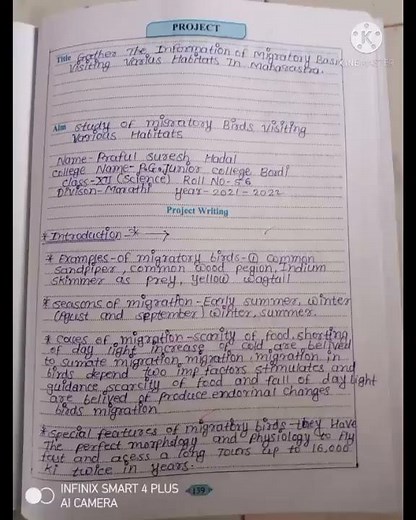 PROJECT
Title Gather The Information of Migratory Basi
Visiting Varius Habitats In Maharastra.
Aim study of migratory Birds visiting
Various Habitats
Name- Praful Suresh Madal
College Name- P.G. Junior College Bordi
class-XII (Science) Roll No-56
Divison-Marathi year-2021-2022
Project Writing
* Introduction *
* Examples-of migratory birds-① Common
sandpiper, common wood pegion, Indium
skimmer as prey, yellow wagtail
* seasons of migration-Early summer, winter
(Agust and september) winter, summer.
* Coues of migration-scarity of food, shorting
of day light increase of cold are belived
to sumate migration migration migration in
birds depend two imp factors stimulates and
guidance scarsity of food and fall of day light
are belived of produce endorinal changes
birds migration
* special features of migratory birds-they Have
The perfect morphology and physiology to fly
fast and acess a long Tours up to 16,000
ki twice in years.
159
INFINIX SMART 4 PLUS
AI CAMERA
KINEMASTER